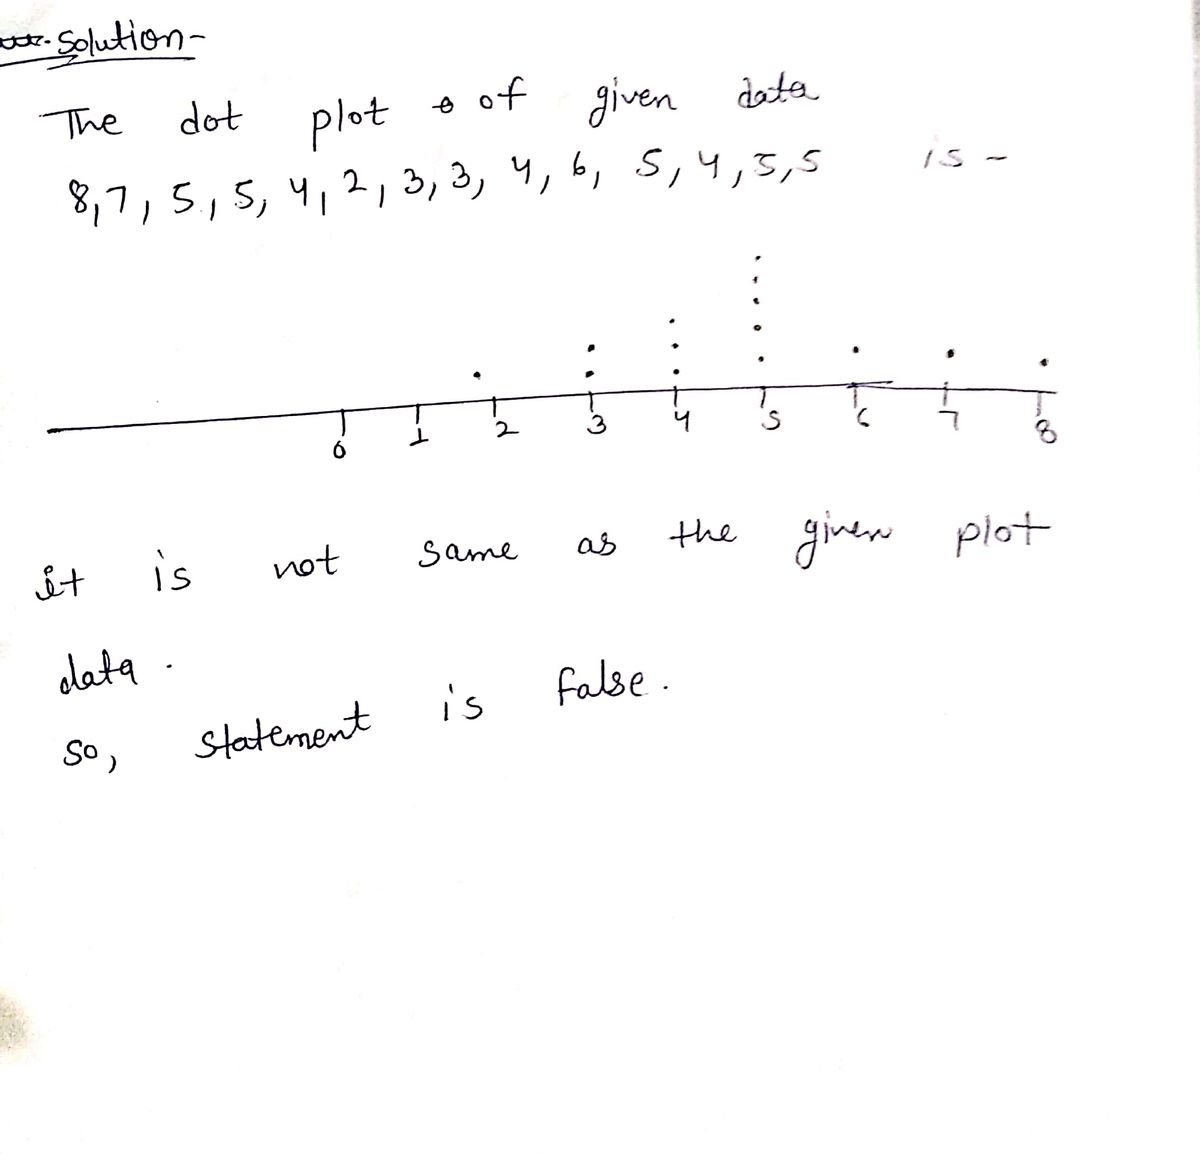 Solution-
The dot plot of given data
8,7,5,5,4,2,3,3,4,6,5,4,5,5 is -
0 1 2 3 4 5 6 7 8
it is not same as the given plot
data.
so, statement is false.